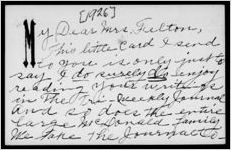 [1926]
My Dear Mrs. Felton,
This little card I send
to you is only just to
say I do surely do enjoy
reading your writings
in the Tri-Weekly Journal
and so does the entire
large McDonald family
We take the Journal